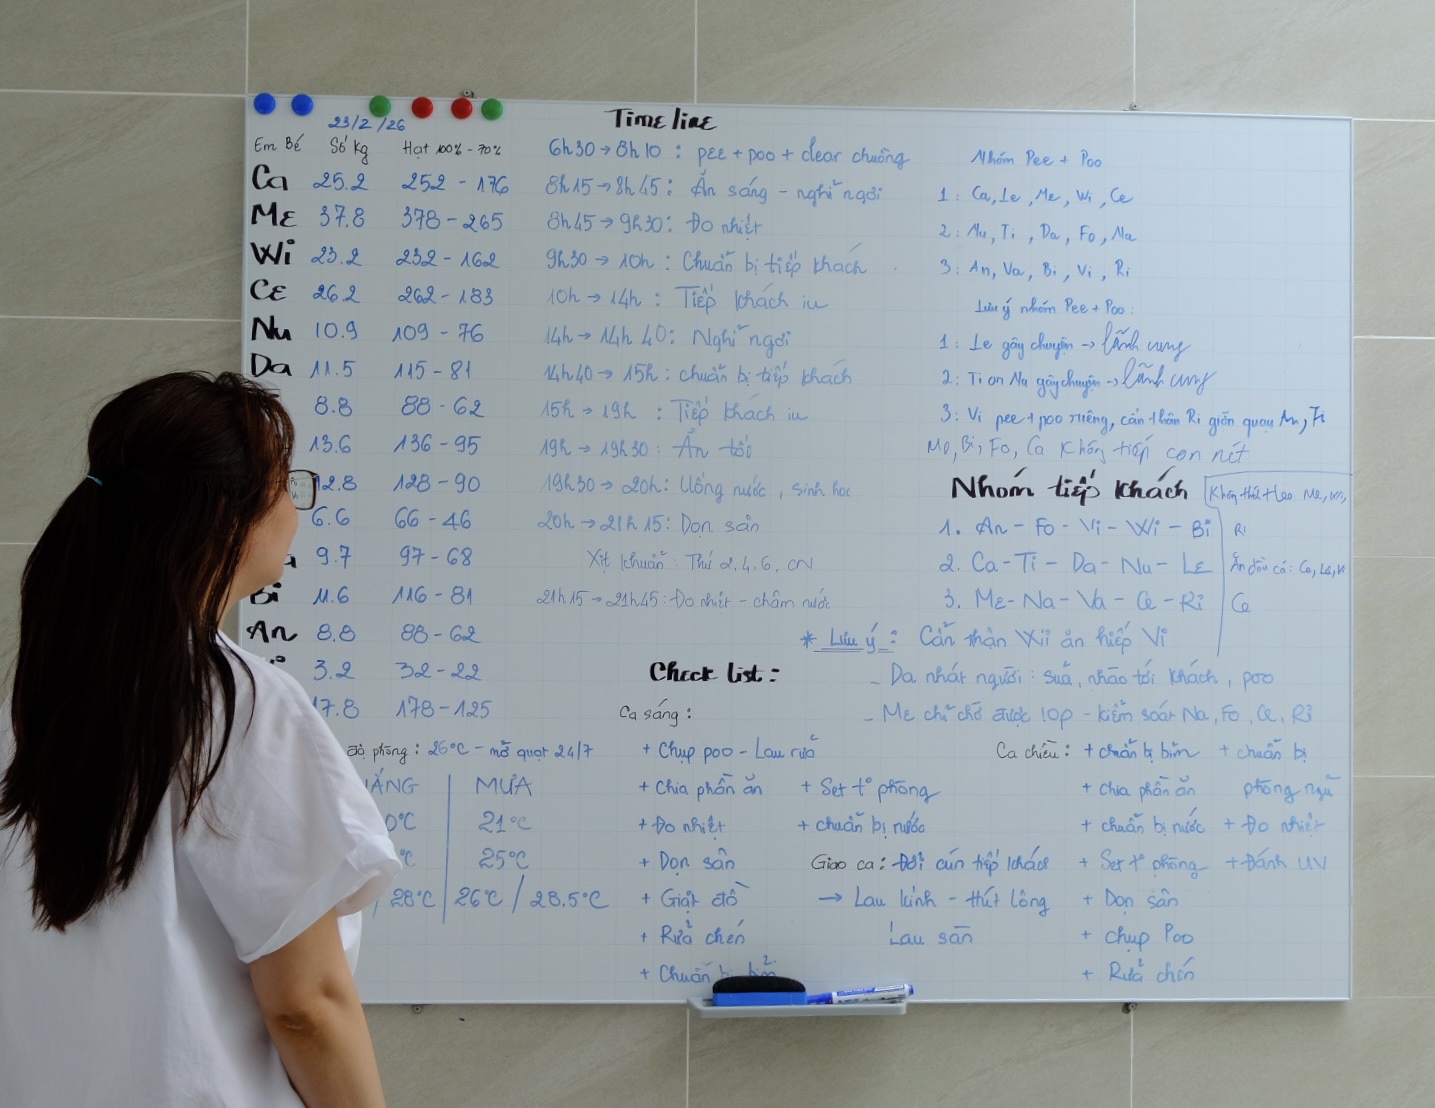 23/2/26
Em Bé Số Kg Hạt 100% - 70%
Ca 25.2 252 - 176
Me 37.8 378 - 265
Wi 23.2 232 - 162
Ce 26.2 262 - 183
Nu 10.9 109 - 76
Da 11.5 115 - 81
8.8 88 - 62
13.6 136 - 95
12.8 128 - 90
6.6 66 - 46
9.7 97 - 68
Bi 11.6 116 - 81
An 8.8 88 - 62
3.2 32 - 22
17.8 178 - 125
độ phòng : 26°C - mở quạt 24/7
MƯA
21°C
25°C
28°C 26°C / 28.5°C
Time line
6h30 → 8h10 : pee + poo + clear chuồng
8h15 → 8h45 : Ăn sáng - nghỉ ngơi
8h45 → 9h30 : Đo nhiệt
9h30 → 10h : Chuẩn bị tiếp khách
10h → 14h : Tiếp khách iu
14h → 14h40 : Nghỉ ngơi
14h40 → 15h : chuẩn bị tiếp khách
15h → 19h : Tiếp khách iu
19h → 19h30 : Ăn tối
19h30 → 20h : Uống nước , sinh học
20h → 21h15 : Dọn sân
Xịt khuẩn : Thứ 2,4,6, CN
21h15 → 21h45 : Đo nhiệt - châm nước
Nhóm Pee + Poo
1 : Ca, Le, Me, Wi, Ce
2 : Nu, Ti, Da, Fo, Na
3 : An, Va, Bi, Vi, Ri
Lưu ý nhóm Pee + Poo :
1 : Le gây chuyện → lãnh cung
2 : Ti or Na gây chuyện → lãnh cung
3 : Vi pee + poo riêng, cẩn thận Ri giỡn quạu An, Ti
Me, Bi, Fo, Ca không tiếp con nít
Nhóm tiếp khách
1. An - Fo - Vi - Wi - Bi
2. Ca - Ti - Da - Nu - Le
3. Me - Na - Va - Ce - Ri
Me, Wi,
Ri
Ce
* Lưu ý : Cẩn thận Wi ăn hiếp Vi
- Da nhát người : sủa, nhào tới khách , poo
- Me chỉ chơi được 10p - kiểm soát Na, Fo, Ce, Ri
Check list :
Ca sáng :
+ Chụp poo - Lau rửa
+ Chia phần ăn + Set t° phòng
+ Đo nhiệt + chuẩn bị nước
+ Dọn sân
+ Giặt đồ
+ Rửa chén
+ Chuẩn bị bỉm
Giao ca : Đợi cún tiếp khách
→ Lau kính - hút lông
Lau sàn
Ca chiều : + chuẩn bị bỉm + chuẩn bị
+ chia phần ăn phòng ngủ
+ chuẩn bị nước + Đo nhiệt
+ Set t° phòng + Đánh UV
+ Dọn sân
+ chụp Poo
+ Rửa chén